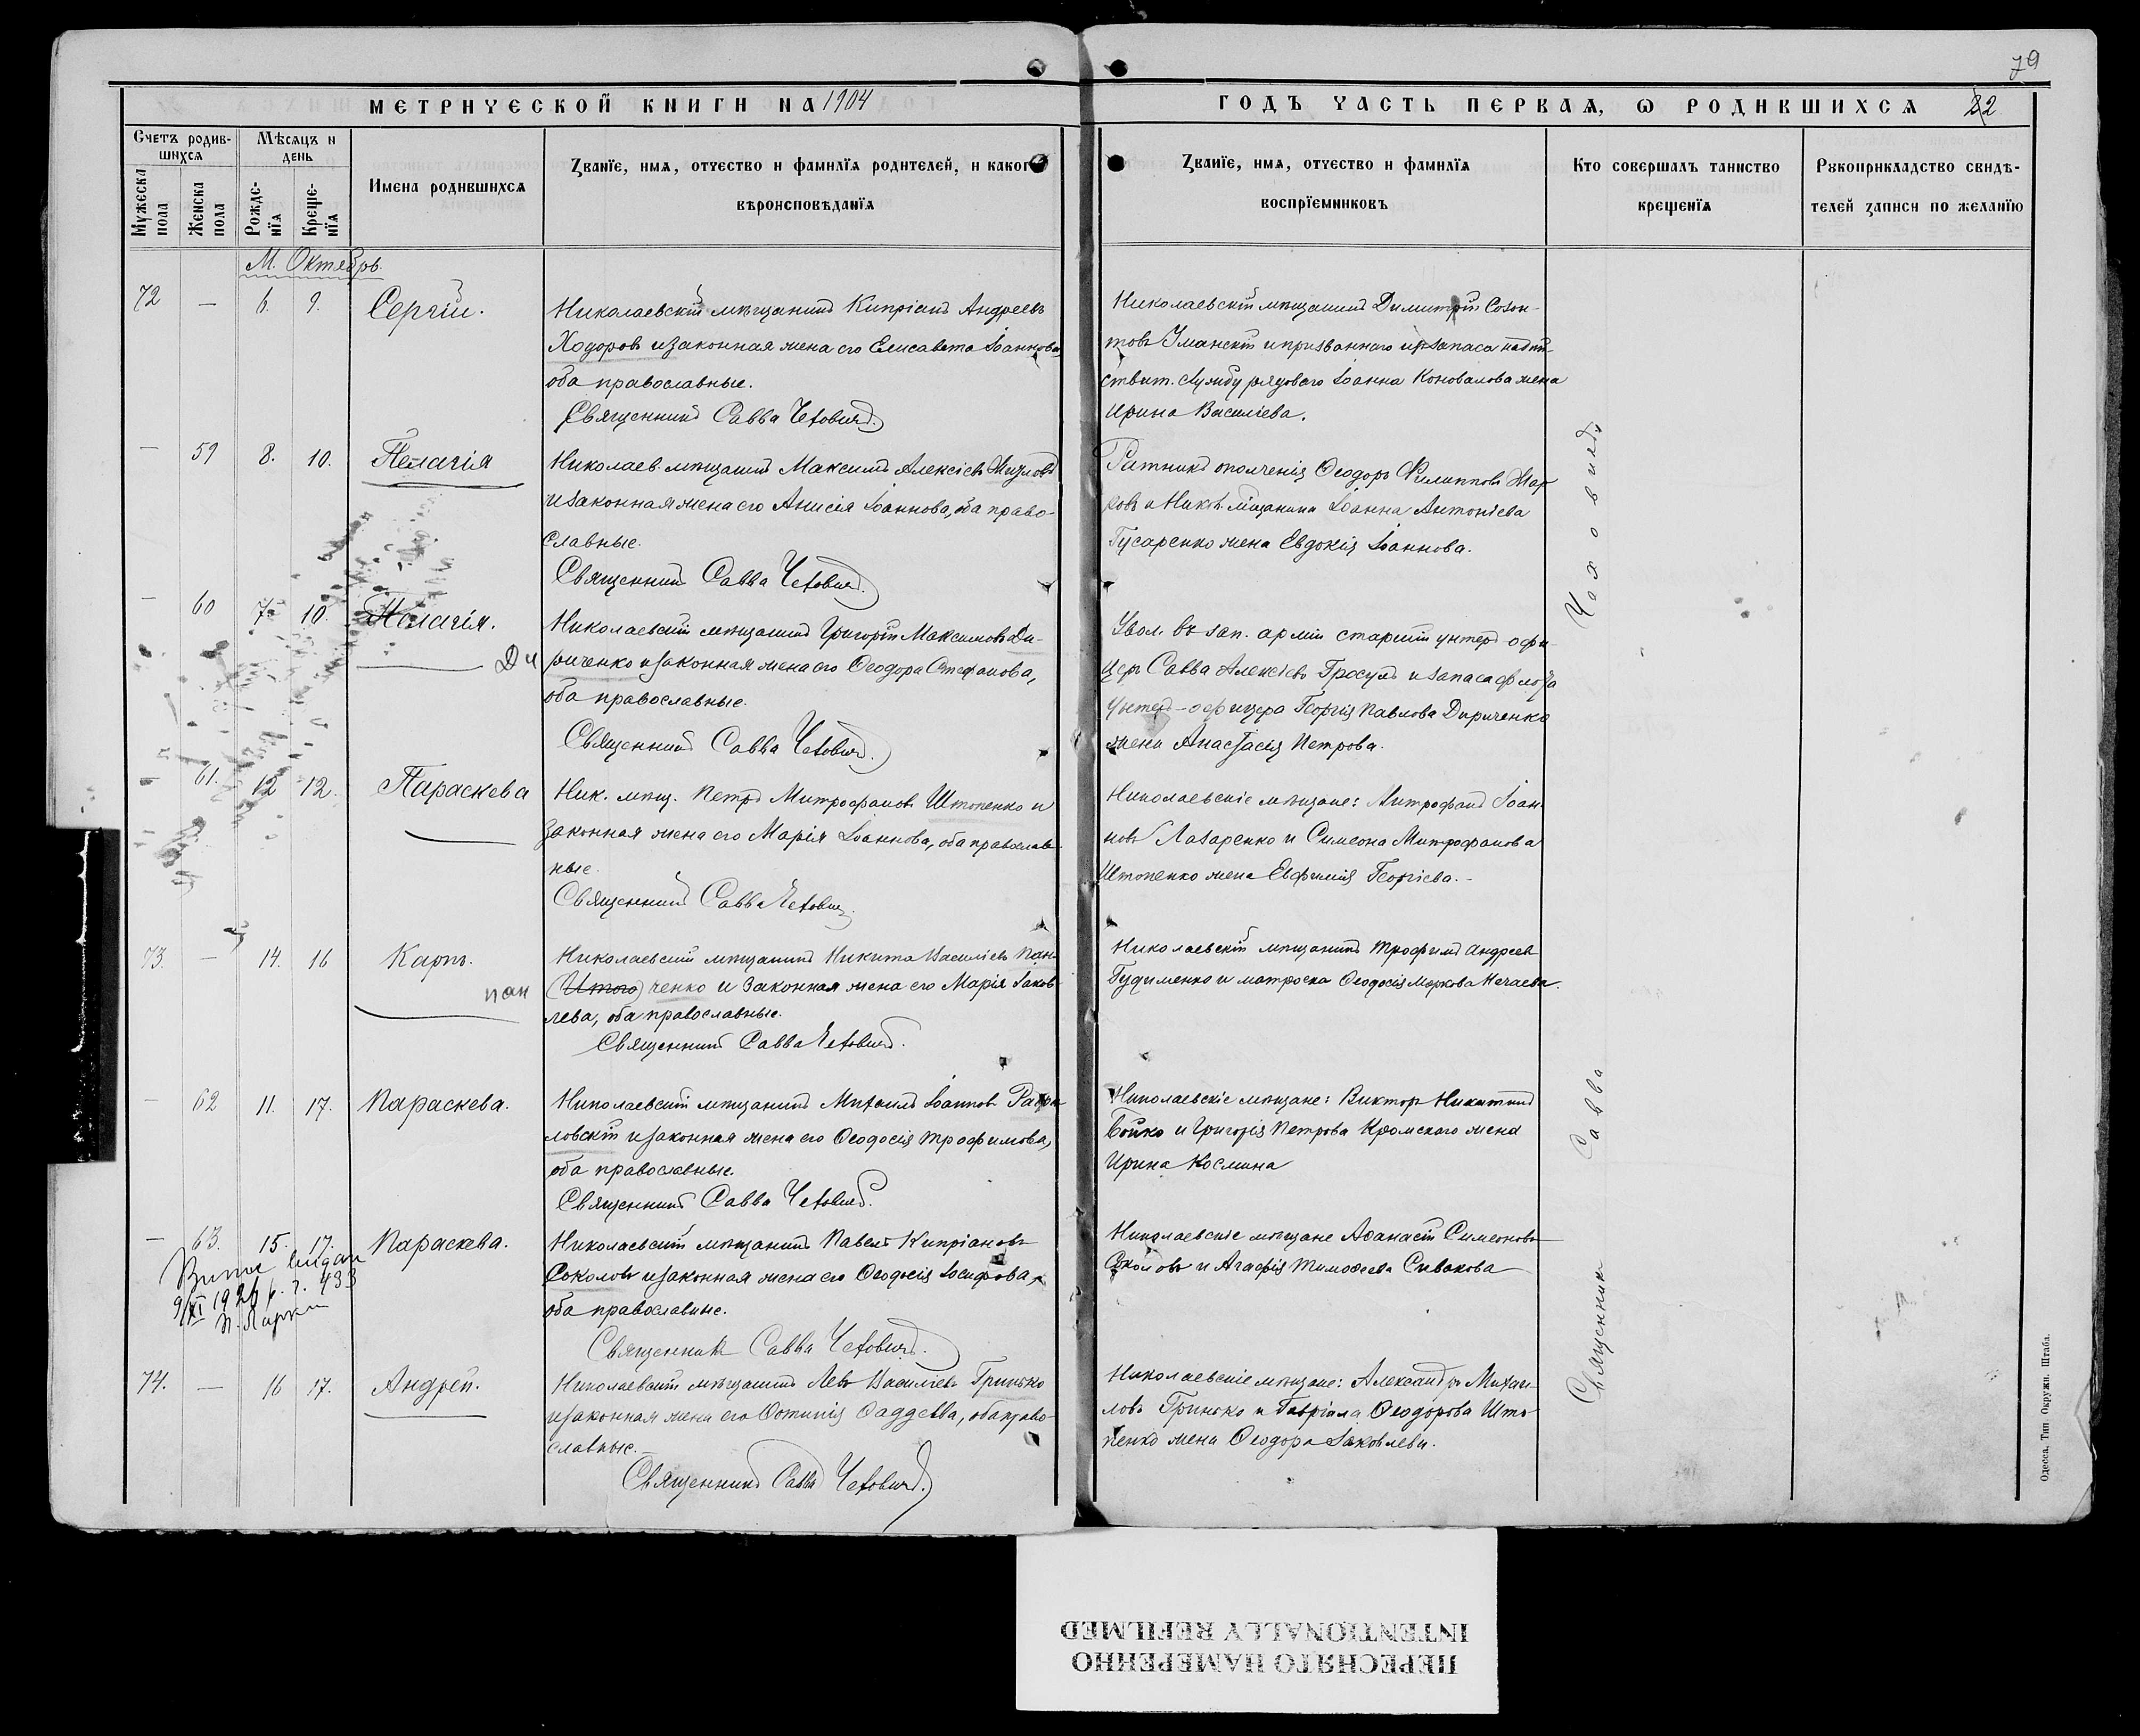 79
МЕТРИЧЕСКОЙ КНИГИ НА 1904
ГОДЪ ЧАСТЬ ПЕРВАЯ, Ѡ РОДИВШИХСЯ 22
Счетъ родив-
шихся
Мужеска пола
Женска пола
Мѣсяцъ и
день
Рожде-
нїя
Креще-
нїя
Имена родившихся
Званїе, имя, отчество и фамилїя родителей, и какого
вѣроисповѣданїя
Званїе, имя, отчество и фамилїя
воспрїемниковъ
Кто совершалъ таинство
крещенїя
Рукоприкладство свидѣ-
телей записи по желанїю
М. Октябрь.
72 — 6. 9. Сергій.
Николаевскій мѣщанинъ Кипріанъ Андреевъ
Ходоровъ и законная жена его Елисавета Іоаннова
оба православные.
Священникъ Савва Чеховичъ.
Николаевскій мѣщанинъ Димитрій Созон-
товъ Уманскій и призваннаго изъ запаса на дѣй-
ствит. службу рядового Іоанна Коновалова жена
Ирина Василіева.
— 59 8. 10. Пелагія
Николаев. мѣщанинъ Максимъ Алексіевъ
и законная жена его Анисія Іоаннова, оба право-
славные.
Священникъ Савва Чеховичъ.
Ратникъ ополченія Ѳеодоръ Филипповъ Жар
ковъ и Никол. мѣщанина Іоанна Антоніева
Гусаренко жена Евдокія Іоаннова.
— 60 7. 10. Пелагія.
Ди
Николаевскій мѣщанинъ Григорій Максимовъ Ди-
риченко и законная жена его Ѳеодора Стефанова,
оба православные.
Священникъ Савва Чеховичъ.
Увол. въ зап. арміи старшій унтеръ офи-
церъ Савва Алексіевъ Гросулъ и запаса флота
унтеръ-офицера Георгія Павлова Дириченко
жена Анастасія Петрова.
— 61. 12 12. Параскева
Ник. мѣщ. Петръ Митрофановъ Штопенко и
законная жена его Марія Іоаннова, оба православ-
ные.
Священникъ Савва Чеховичъ.
Николаевскіе мѣщане: Митрофанъ Іоан-
новъ Лазаренко и Симеона Митрофанова
Штопенко жена Евфимія Георгіева.
73. — 14. 16 Карпъ.
пан
Николаевскій мѣщанинъ Никита Василіевъ Пан-
(Итого) ченко и законная жена его Марія Іаков-
лева, оба православные.
Священникъ Савва Чеховичъ.
Николаевскій мѣщанинъ Трофимъ Андреевъ
Гудименко и матроска Ѳеодосія Маркова Нечаева.
— 62 11. 17. Параскева.
Николаевскій мѣщанинъ Михаилъ Іоанновъ
ловскій и законная жена его Ѳеодосія Трофимова,
оба православные.
Священникъ Савва Чеховичъ.
Николаевскіе мѣщане: Викторъ Никитинъ
Бойко и Григорія Петрова Кромского жена
Ирина Космина
— 63. 15. 17. Параскева.
9/XI 1926 р. 433
Николаевскій мѣщанинъ Павелъ Кипріановъ
Соколовъ и законная жена его Ѳеодосія Іосифова,
оба православные.
Священникъ Савва Чеховичъ.
Николаевскіе мѣщане Аѳанасій Симеоновъ
Соколовъ и Агафія Тимоѳеева Сивакова
74. — 16 17. Андрей.
Николаевскій мѣщанинъ Левъ Василіевъ Гринько
и законная жена его Фотинія Фаддеева, оба право-
славные.
Священникъ Савва Чеховичъ.
Николаевскіе мѣщане: Александръ Михаи-
ловъ Гринько и Гавріила Ѳеодорова Што-
пенко жена Ѳеодора Іаковлева.
Священникъ Савва Чеховичъ
Одесса. Тип. Окружн. Штаба.
ПЕРЕСНЯТО НАМЕРЕННО
INTENTIONALLY REFILMED